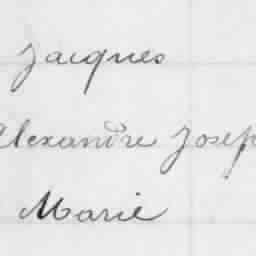 Jacques
Alexandre Josep
Marie